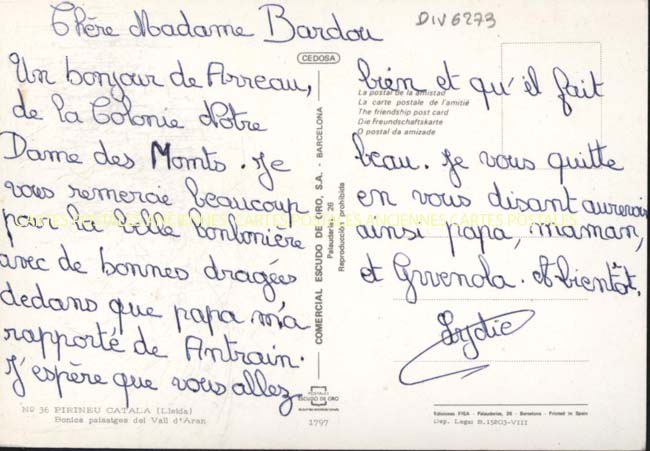 Chère Madame Bardou
DIV6273
Un bonjour de Arreau,
de la Colonie Notre
Dame des Monts. Je
vous remercie beaucoup
par la belle bonbonière
avec de bonnes dragées
dedans que papa m'a
rapporté de Antrain.
J'espère que vous allez
bien et qu'il fait
beau. Je vous quitte
en vous disant aurevoir
ainsi papa, maman,
et Gwenola. A bientôt,
Lydie
CEDOSA
COMERCIAL ESCUDO DE ORO, S.A. - BARCELONA
Palaudarias, 26
Reproducción prohibida
La postal de la amistad
La carte postale de l'amitié
The friendship post card
Die freundschaftskarte
O postal da amizade
CARTES POSTALES ANCIENNES CARTES POSTALES
Nº 36 PIRINEU CATALA (Lleida)
Bonics paisatges del Vall d'Aran
POSTALES
ESCUDO DE ORO
1797
Ediciones FISA - Palaudarias, 26 - Barcelona - Printed in Spain
Dep. Legal B.15203-VIII